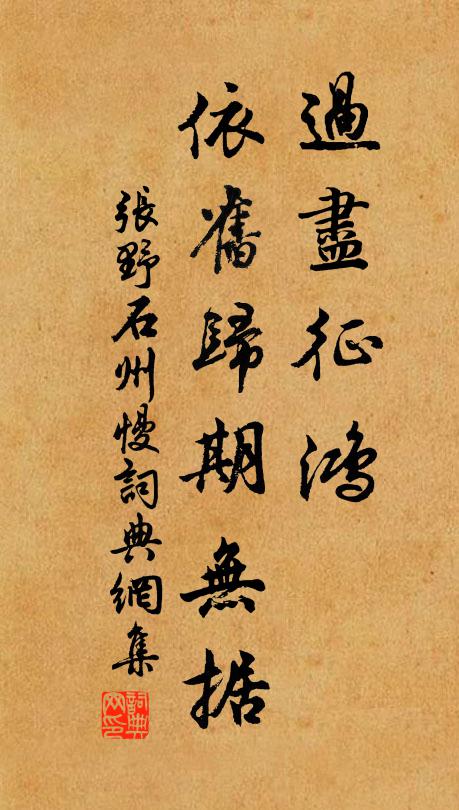 過盡征鴻
依舊歸期無据
張野石州慢詞典網集
詞典网印